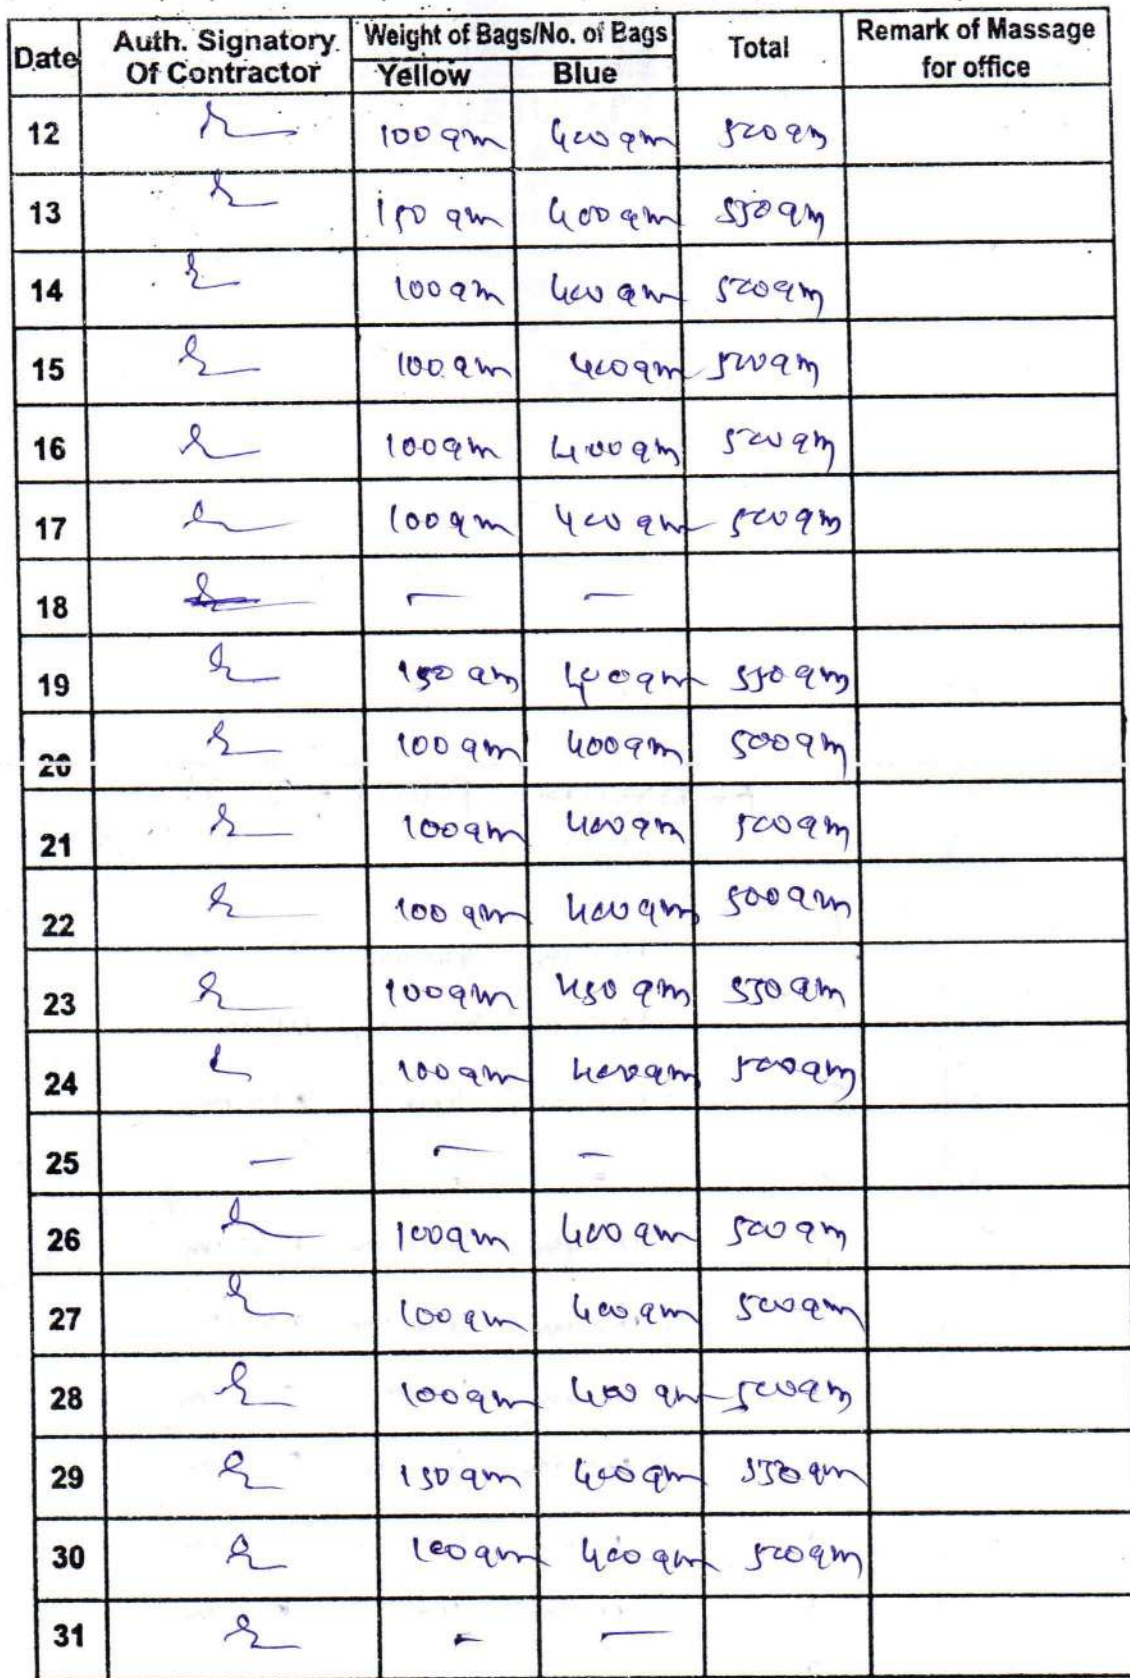 Date Auth. Signatory Of Contractor Weight of Bags/No. of Bags Yellow Blue Total Remark of Massage for office
12 100 gm 400 gm 500 gm
13 150 gm 400 gm 550 gm
14 100 gm 400 gm 500 gm
15 100 gm 400 gm 500 gm
16 100 gm 400 gm 500 gm
17 100 gm 400 gm 500 gm
18 — —
19 150 gm 400 gm 550 gm
20 100 gm 400 gm 500 gm
21 100 gm 400 gm 500 gm
22 100 gm 400 gm 500 gm
23 100 gm 450 gm 550 gm
24 100 gm 400 gm 500 gm
25 — — —
26 100 gm 400 gm 500 gm
27 100 gm 400 gm 500 gm
28 100 gm 400 gm 500 gm
29 150 gm 400 gm 550 gm
30 100 gm 400 gm 500 gm
31 - —